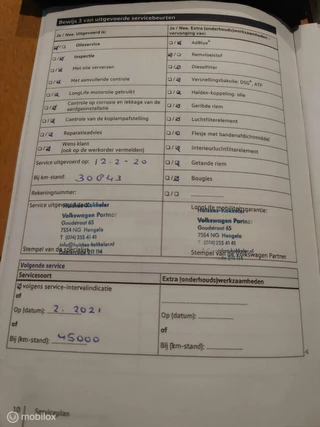 Bewijs 3 van uitgevoerde servicebeurten
Ja / Nee. Uitgevoerd is:
Ja / Nee. Extra (onderhouds)werkzaamheden / vervanging van:
Olieservice
AdBlue®
Inspectie
Remvloeistof
Met olie verversen
Dieselfilter
Met aanvullende controle
Versnellingsbakolie: DSG®, ATF
LongLife motorolie gebruikt
Haldex-koppeling: olie
Controle op corrosie en lekkage van de aardgasinstallatie
Geribde riem
Controle van de koplampafstelling
Luchtfilterelement
Reparatieadvies
Flesje met bandenafdichtmiddel
Wens klant
(ook op de werkorder vermelden)
Interieurluchtfilterelement
Service uitgevoerd op: 12-2-20
Getande riem
Bij km-stand: 30843
Bougies
Rekeningnummer:
LongLife mobiliteitsgarantie:
Volkswagen Partner
Gieudestraat 65
7554 NG Hengelo
T (074) 255 41 41
Stempel van de Volkswagen Partner
Volgende service
Servicesoort
Extra (onderhouds)werkzaamheden
volgens service-intervalindicatie
of
of
Op (datum): 2. 2021
Op (datum):
of
of
Bij (km-stand): 45000
Bij (km-stand):
10 Serviceplan
mobilox